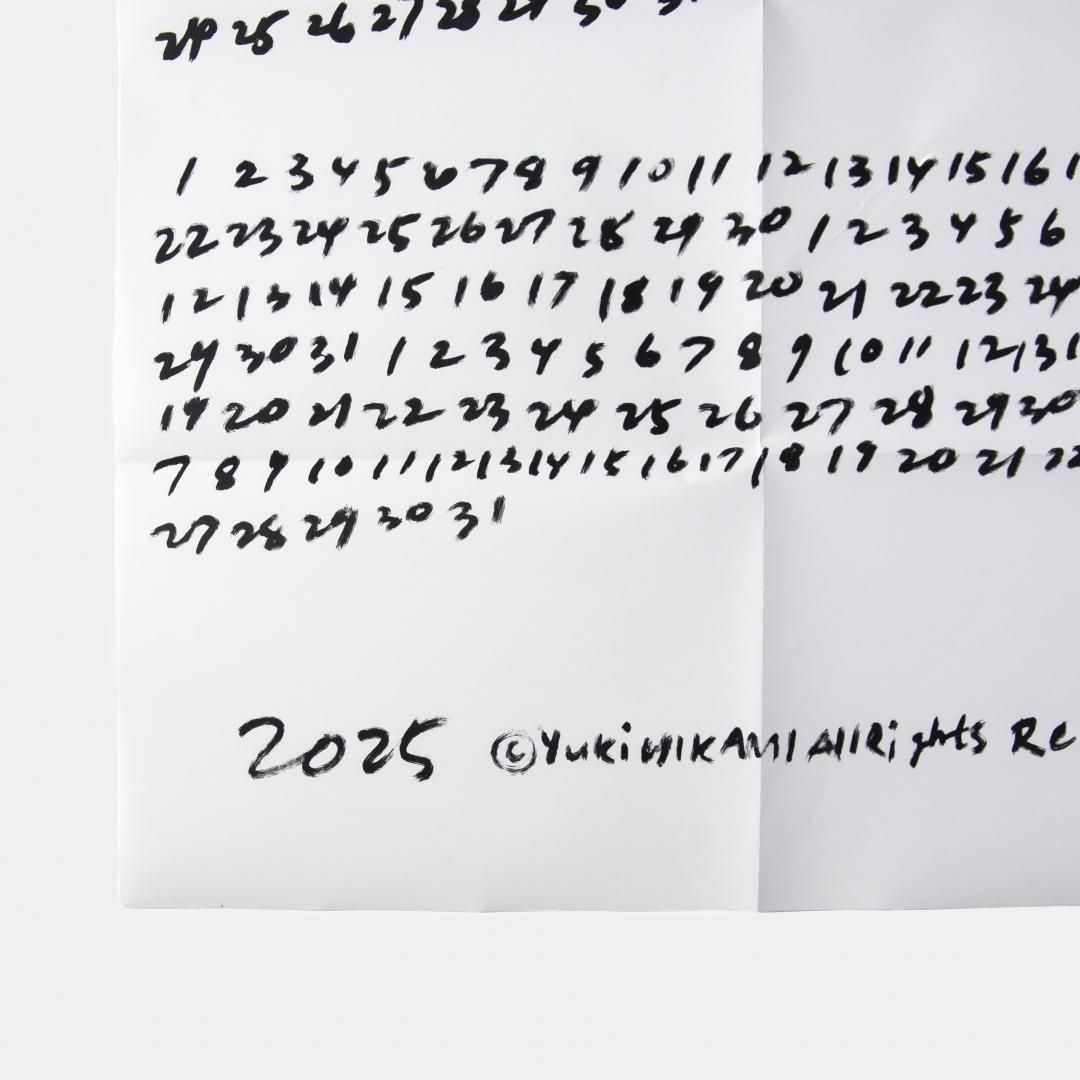 24 25 26 27 28 29 30 31
1 2 3 4 5 6 7 8 9 10 11 12 13 14 15 16 1
22 23 24 25 26 27 28 29 30 1 2 3 4 5 6
12 13 14 15 16 17 18 19 20 21 22 23 24
29 30 31 1 2 3 4 5 6 7 8 9 10 11 12 13 1
19 20 21 22 23 24 25 26 27 28 29 30
7 8 9 10 11 12 13 14 15 16 17 18 19 20 21 22
27 28 29 30 31
2025 ©Yuki MIKAMI All Rights Re